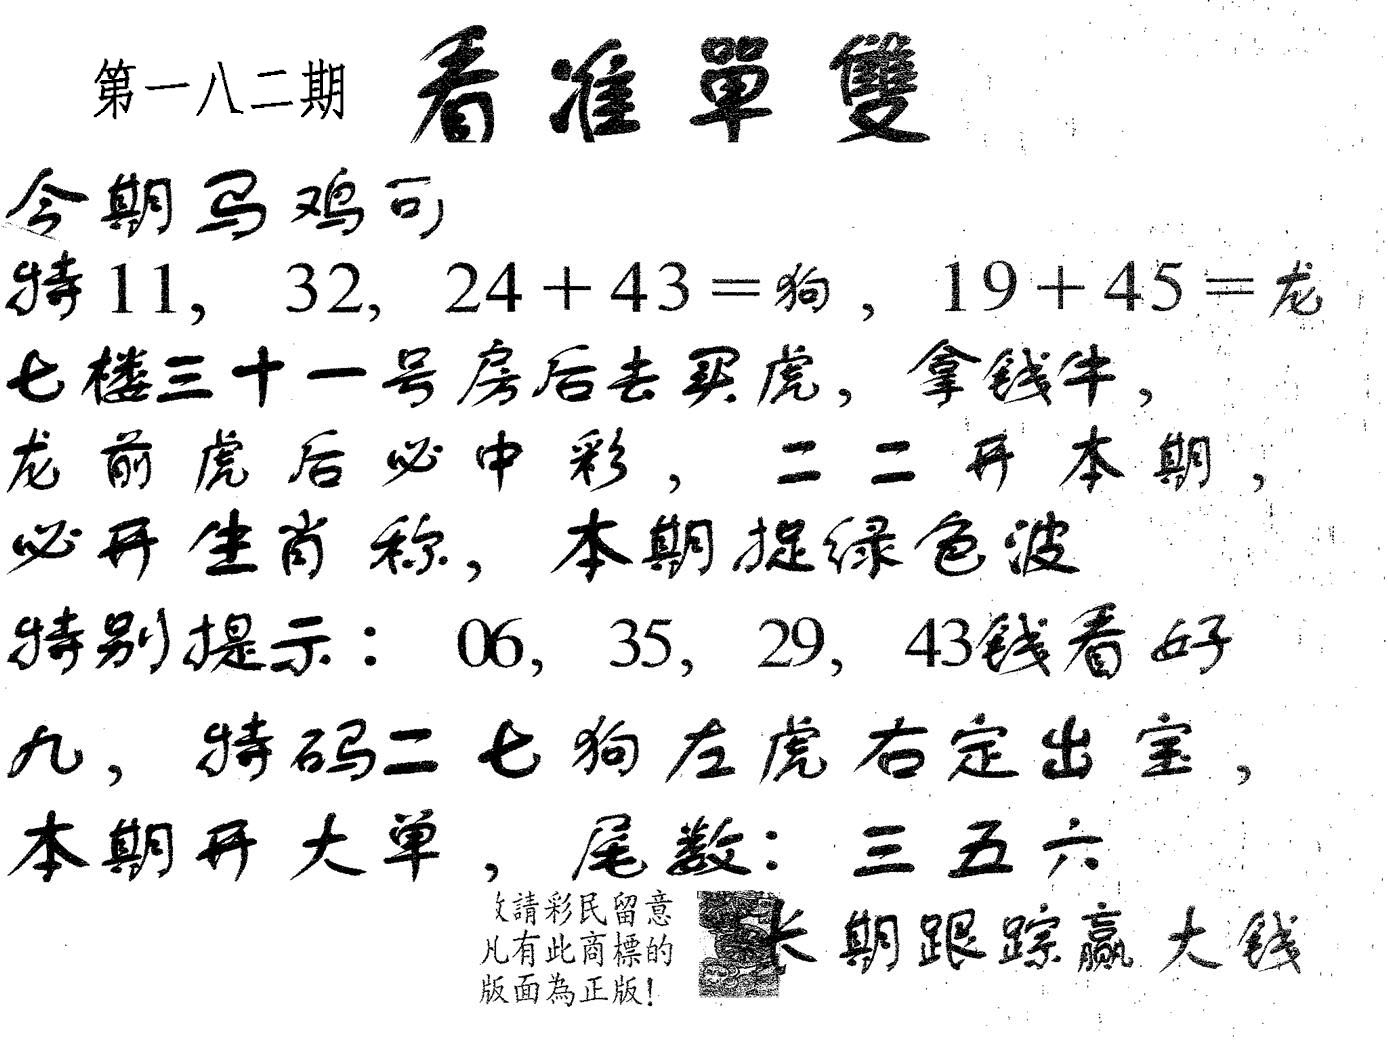 第一八二期 看准單雙
今期马鸡可
特11, 32, 24+43=狗, 19+45=龙
七楼三十一号房后去买虎, 拿钱牛,
龙前虎后必中彩, 二二开本期,
必开生肖称, 本期捉绿色波
特别提示: 06, 35, 29, 43钱看好
九, 特码二七狗左虎右定出宝,
本期开大单, 尾数: 三五六
請彩民留意
凡有此商標的
版面為正版!
长期跟踪赢大钱